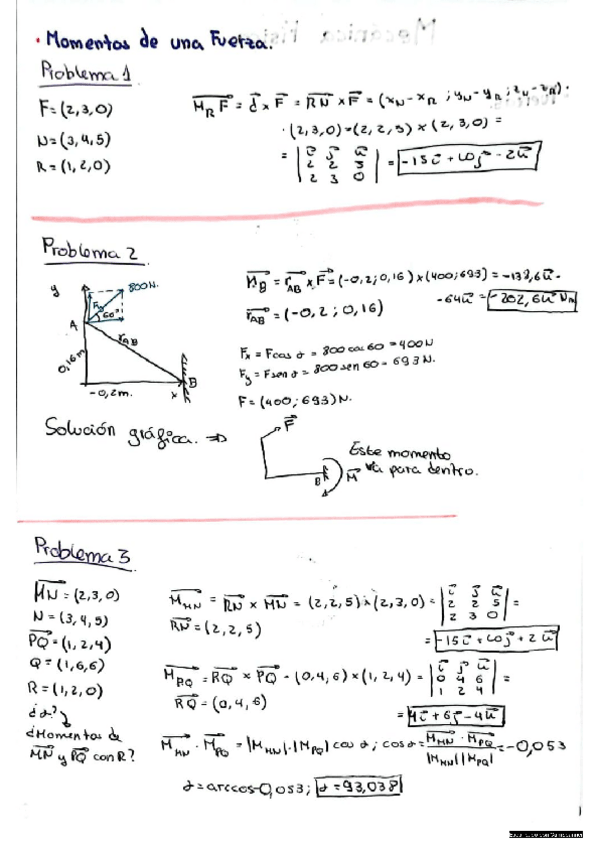 • Momentos de una Fuerza.
Problema 1
F = (2,3,0)
N = (3,4,5)
R = (1,2,0)
M_R F = d x F = RN x F = (x_N - x_R ; y_N - y_R ; z_N - z_R) ·
· (2,3,0) = (2,2,5) x (2,3,0) =
2 2 5
2 3 0
= -15i + 10j - 2k
Problema 2
y
800N.
Fy
60°
A
r_AB
0,16m
B
-0,2m.
x
M_B = r_AB x F = (-0,2; 0,16) x (400; 693) = -138,6k -
-64k = -202,6k Nm
r_AB = (-0,2 ; 0,16)
Fx = F cos α = 800 cos 60 = 400N
Fy = F sen α = 800 sen 60 = 693 N.
F = (400; 693) N.
Solución gráfica. ⇒
F
B
M
Este momento
va para dentro.
Problema 3
MN = (2,3,0)
N = (3,4,5)
PQ = (1,2,4)
Q = (1,6,6)
R = (1,2,0)
¿α?
¿Momentos de
MN y PQ con R?
M_MN = RN x MN = (2,2,5) x (2,3,0) =
2 2 5
2 3 0
=
RN = (2,2,5)
= -15i + 10j + 2k
M_PQ = RQ x PQ = (0,4,6) x (1,2,4) =
0 4 6
1 2 4
=
RQ = (0,4,6)
= 4i + 6j - 4k
M_MN · M_PQ = |M_MN| · |M_PQ| cos α ; cos α = M_MN · M_PQ / |M_MN| |M_PQ| = -0,053
α = arccos -0,053 ; α = 93,038